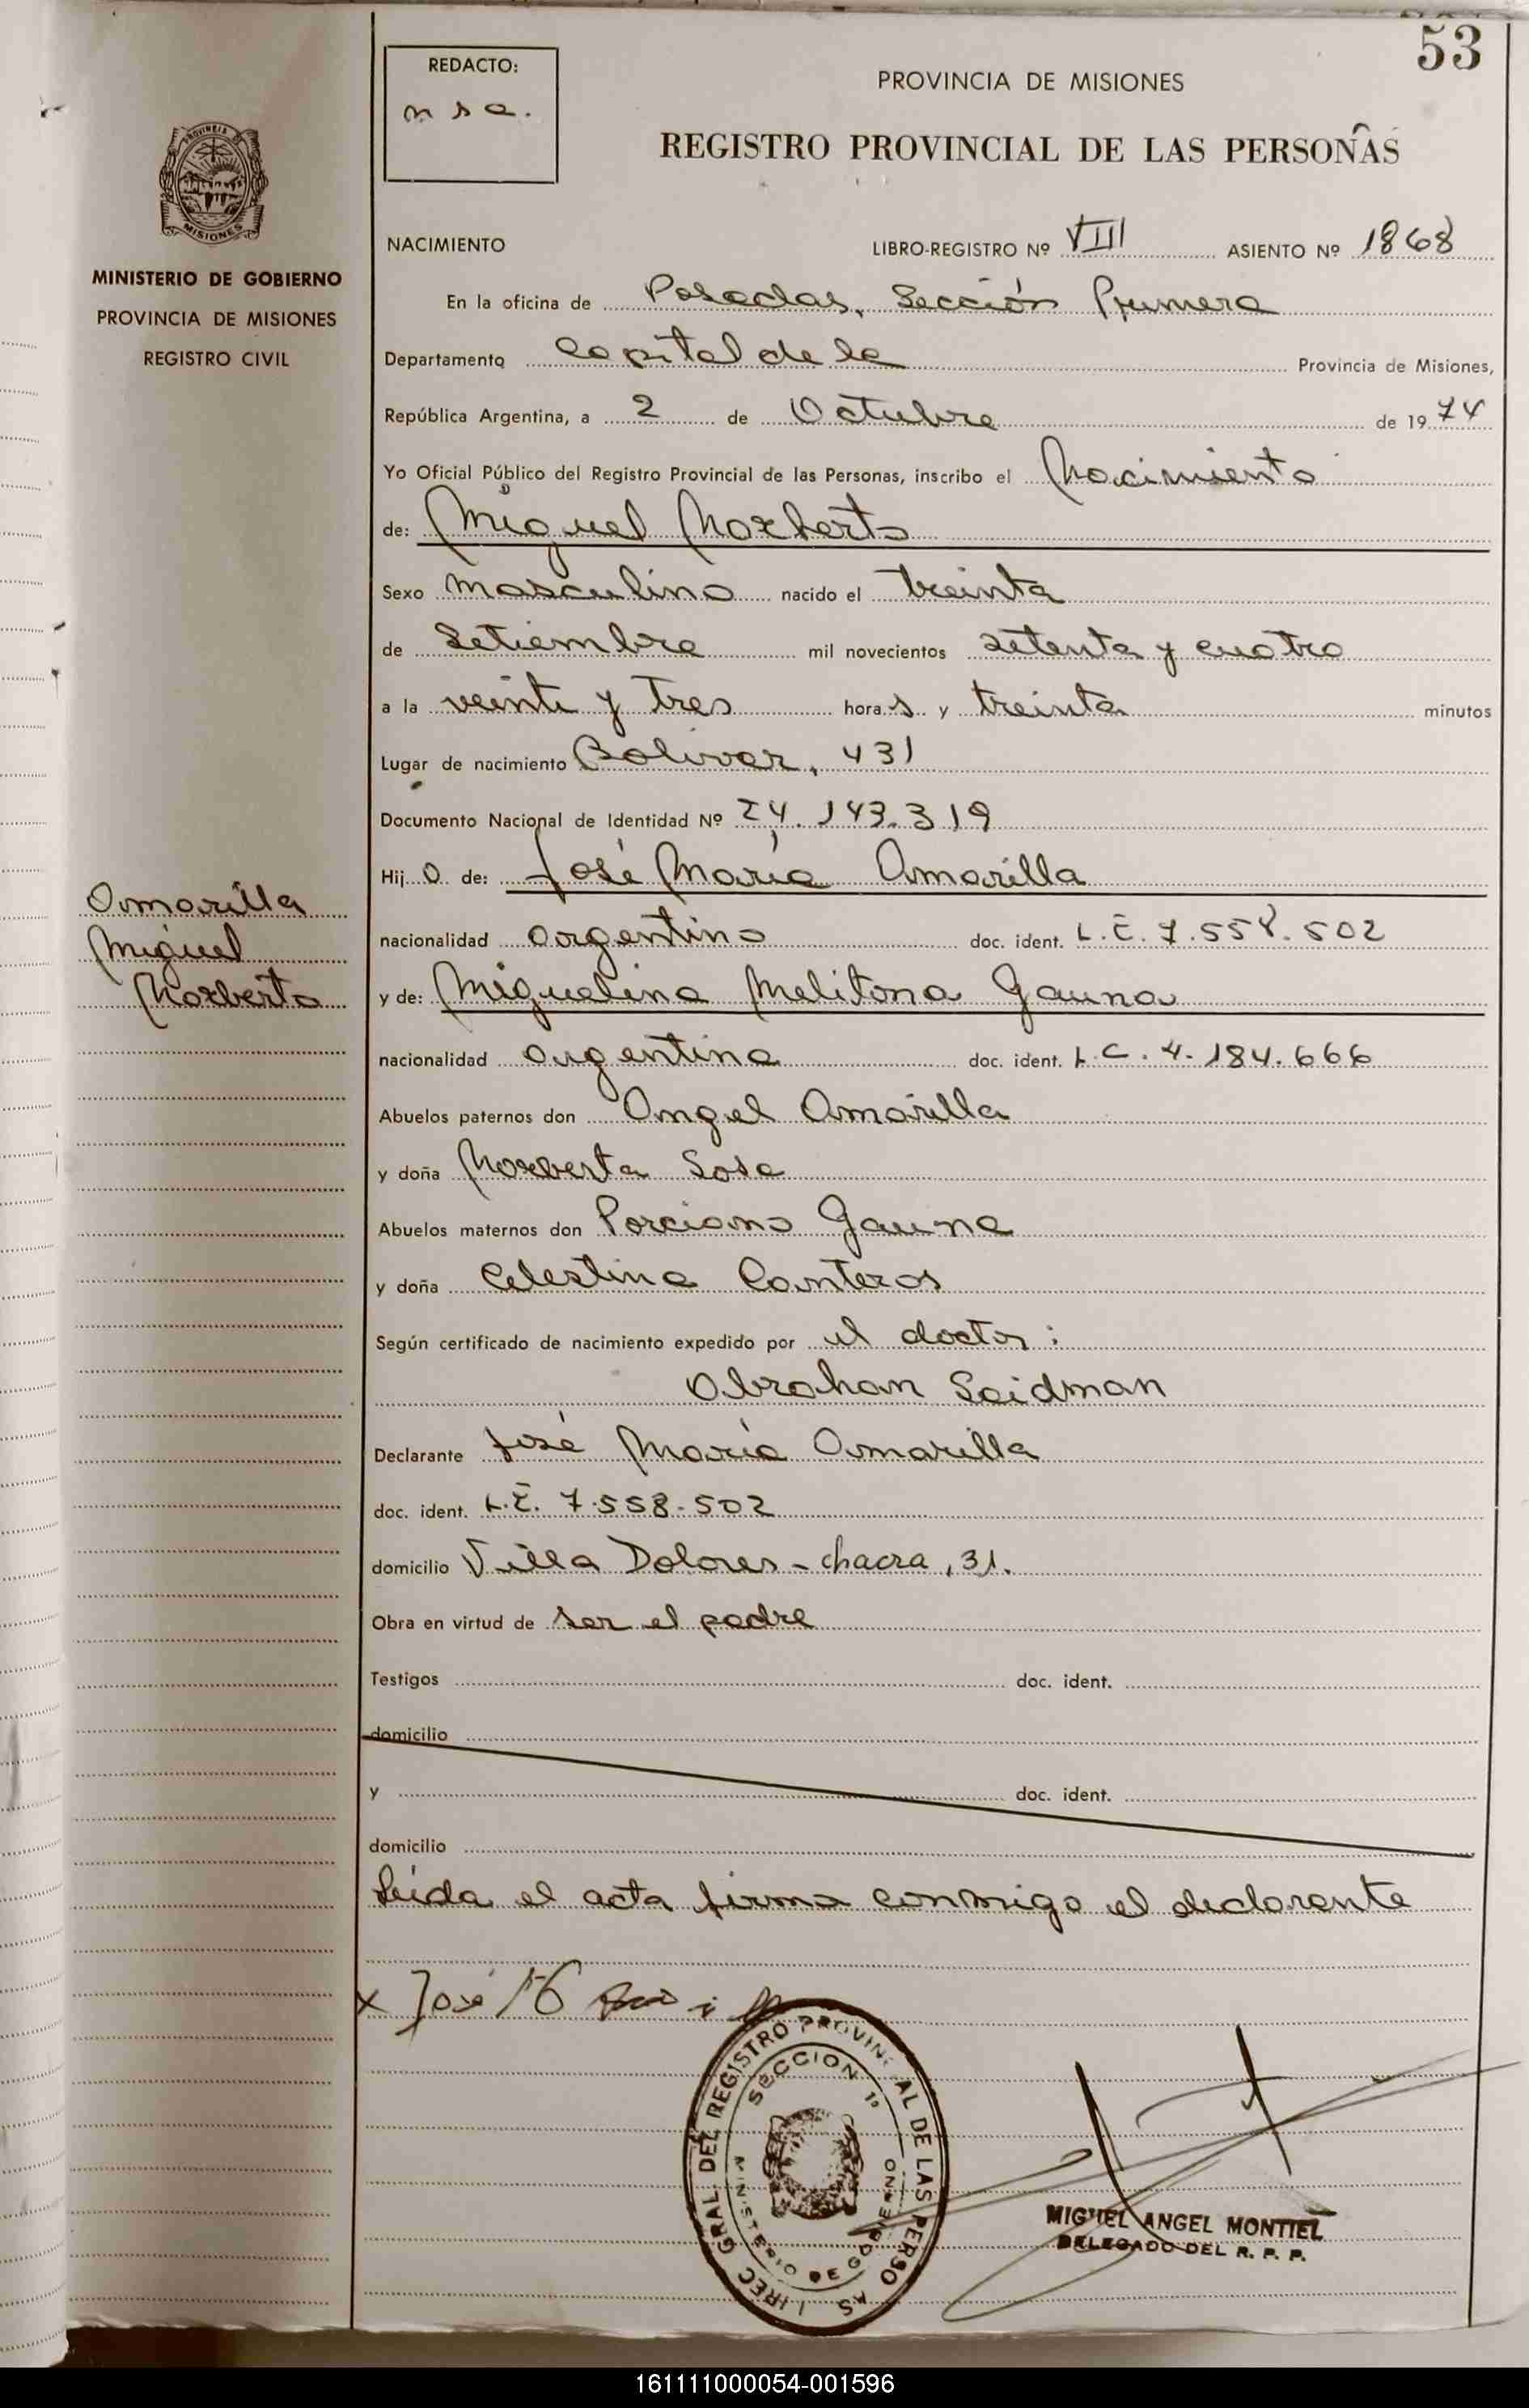 53
REDACTO:
n s a.
PROVINCIA DE MISIONES
REGISTRO PROVINCIAL DE LAS PERSONAS
PROVINCIA DE
MISIONES
MINISTERIO DE GOBIERNO
PROVINCIA DE MISIONES
REGISTRO CIVIL
NACIMIENTO LIBRO-REGISTRO Nº VIII ASIENTO Nº 1868
En la oficina de Posadas, Sección Primera
Departamento Capital de la Provincia de Misiones,
República Argentina, a 2 de Octubre de 1974
Yo Oficial Público del Registro Provincial de las Personas, inscribo el Nacimiento
de: Miguel Norberto
Sexo Masculino nacido el treinta
de Setiembre mil novecientos setenta y cuatro
a la veinte y tres horas y treinta minutos
Lugar de nacimiento Bolivar, 431
Documento Nacional de Identidad Nº 24.143.319
Hijo de: José María Amarilla
nacionalidad argentino doc. ident. L.E. 7.558.502
y de: Miguelina Melitona Gauna
nacionalidad argentina doc. ident. L.C. 4.184.666
Abuelos paternos don Angel Amarilla
y doña Norberta Sosa
Abuelos maternos don Porciano Gauna
y doña Celestina Canteros
Según certificado de nacimiento expedido por el doctor:
Abrahan Saidman
Declarante José María Amarilla
doc. ident. L.E. 7.558.502
domicilio Villa Dolores - chacra, 31.
Obra en virtud de ser el padre
Testigos doc. ident.
domicilio
y doc. ident.
domicilio
Leida el acta firma conmigo el declarante
Amarilla
Miguel
Norberto
x José
DIREC GRAL. DEL REGISTRO PROVINCIAL DE LAS PERSONAS
SECCION 1º
MINISTERIO DE GOBIERNO
MIGUEL ANGEL MONTIEL
DELEGADO DEL R. P. P.
161111000054-001596